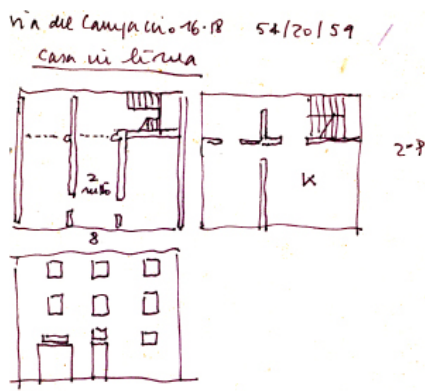 via del Campaccio 16-18 54/20/59
casa in linea
2
K
2-P
8